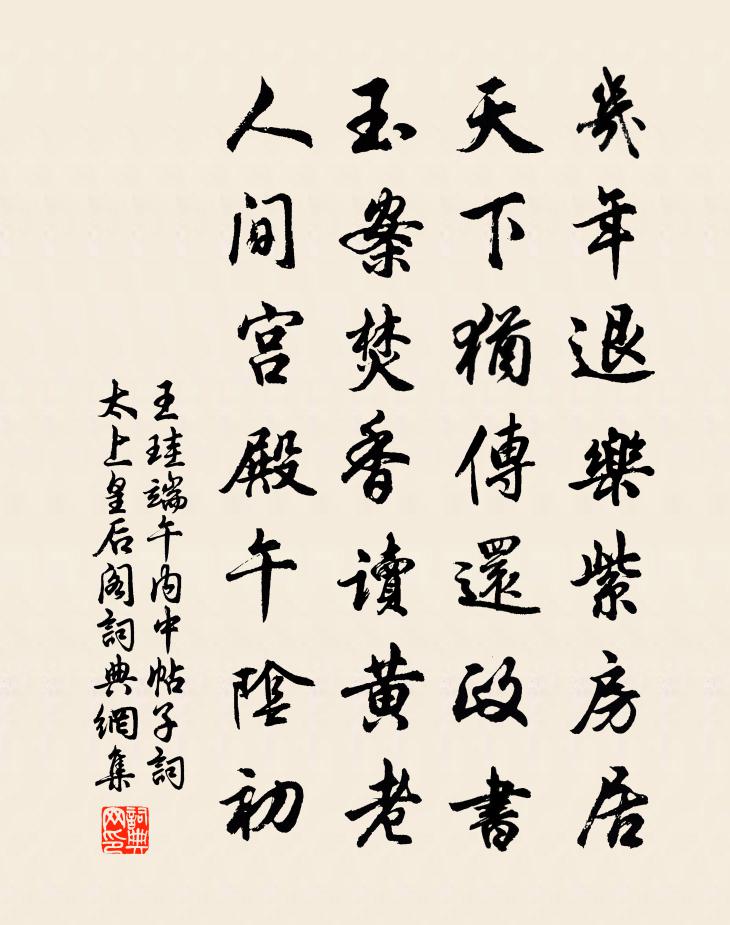 幾年退樂紫房居
天下猶傳還政書
玉案焚香讀黄老
人间宫殿午陰初
王珪端午内中帖子詞
太上皇后阁詞典網集
詞典网印